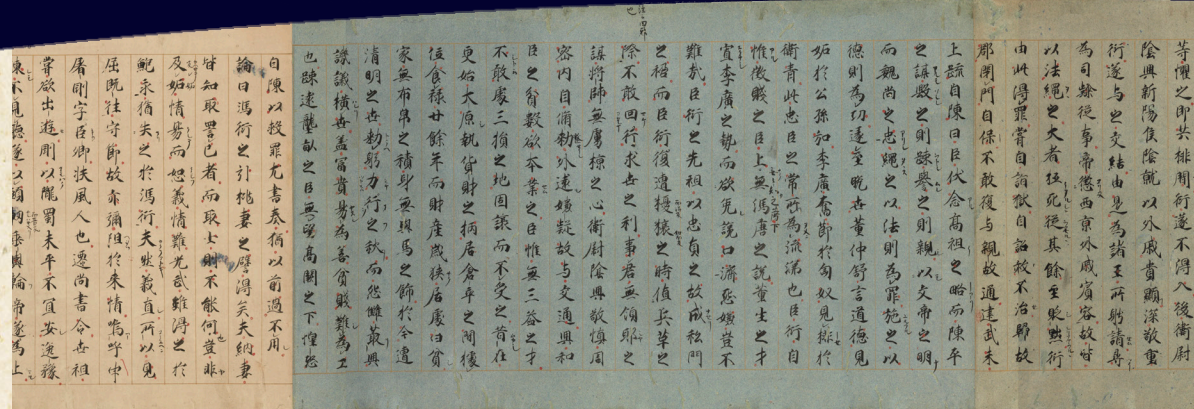 等懼之即共排間衍遂不得入後衛尉
陰興新陽侯陰就以外戚貴顯深敬重
衍遂與之交結由是為諸王所聘請尋
為司隸從事帝懲西京外戚賓客故皆
以法繩之大者抵死徙其餘至貶黜衍
由此得罪嘗自詣獄自詔赦不治歸故
郡閇門自保不敢復與親故通建武末
上疏自陳曰臣伏念高祖之略而陳平
之謀毀之則疎譽之則親以文帝之明
而魏尚之忠繩之以法則為罪施之以
德則為功逮至晩世董仲舒言道德見
妬於公孫弘李廣奮節於匈奴見排於
衛青此忠臣之常所為流涕也臣衍自
惟微賤之臣上無馮唐之說董生之才
寡李廣之勢而欲免讒口濟怨嫌豈不
難哉臣衍之先祖以忠貞之故成私門
之禍而臣衍復遭擾攘之時值兵革之
際不敢回行求世之利事君無傾邪之
謀將帥無虜掠之心衛尉陰興敬慎周
密内自脩勅外遠嫌疑故与交通興知
臣之貧數欲本業之臣惟無三益之才
不敢處三損之地固讓而不受之昔在
更始大原執貨財之柄居倉卒之間據
位食祿廿餘年而財產歲狹居處日貧
家無布帛之積身無輿馬之飾於今遭
清明之世勅躬力行之秋而怨雠菆興
譏議橫世蓋富貴易為善貧賤難為工
也疎遠壟畝之臣無望高闕之下惶恐
自陳以救罪尤書奏猶以前過不用
論曰馮衍之引挑妻之譬得矣夫納妻
皆知取詈己者而取士則不能何豈非
反妬情易而恕義情難光武雖得之於
鮑永猶失之於馮衍夫然義直所以見
屈既往守節故亦彌阻於来情嗚呼申
屠剛字臣卿扶風人也遷尚書令世祖
嘗欲出遊剛以隴蜀未平不宜安逸豫
諫不見聽遂以頭軔乘輿輪帝遂為上